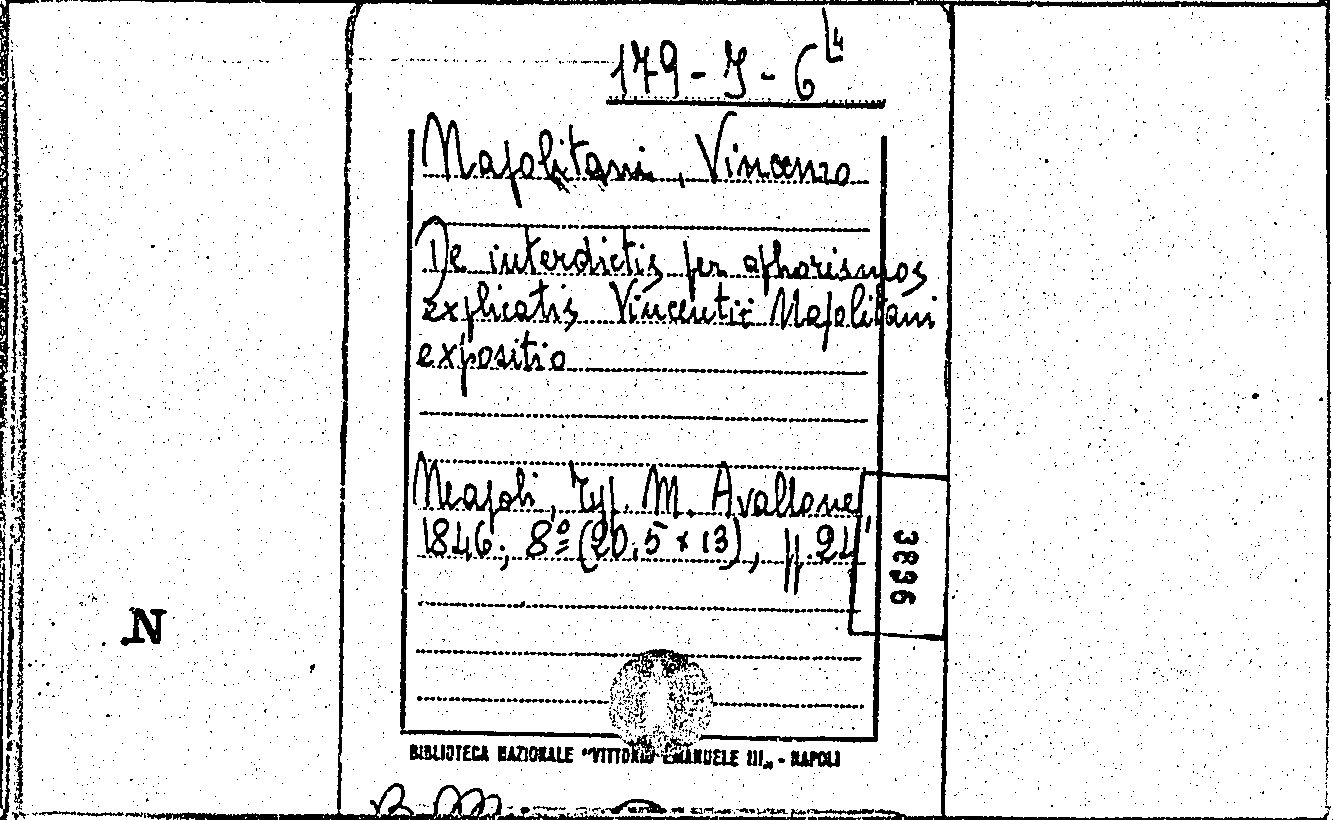 179-J-6 L4
Napolitani, Vincenzo
De interdictis per aphorismos
explicatis Vincentii Napolitani
expositio
Neapoli, Typ. M. Avallone,
1846; 8º (20,5 x 13), pp. 24
3896
N
BIBLIOTECA NAZIONALE "VITTORIO EMANUELE III„ - NAPOLI